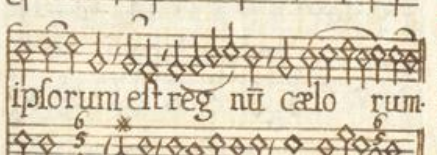 ipſorum eſt reg nū cælo rum.
6 6
5 * 5